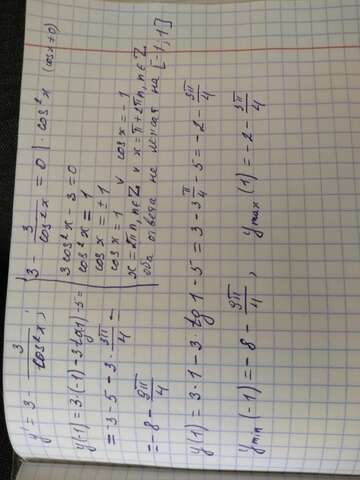 y' = 3 - 3/cos²x ;
3 - 3/cos²x = 0 | · cos²x (cosx ≠ 0)
3 cos²x - 3 = 0
cos²x = 1
cosx = ± 1
cosx = 1 ∨ cosx = -1
x = 2πn, n∈Z ∨ x = π + 2πn, n∈Z
оба ответа не лежат на [-1; 1]
y(-1) = 3·(-1) - 3·tg(-1) - 5 =
= -3 - 5 - 3 · 3π/4 =
= -8 - 9π/4
y(1) = 3·1 - 3·tg 1 - 5 = 3 - 3 π/4 - 5 = -2 - 3π/4
y min (-1) = -8 - 9π/4 , y max (1) = -2 - 3π/4